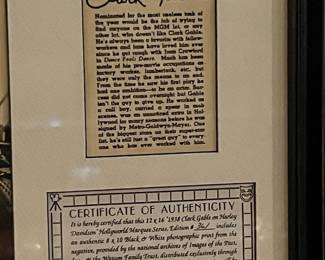 Clark
Nominated for the most useless task of
the year would be the job of trying to
find anyone on the MGM lot, or any
other lot, who doesn't like Clark Gable.
He's always been a favorite with fellow-
workers and fans have loved him ever
since he got tough with Joan Crawford
in Dance Fools Dance. Much has been
made of his pre-movie occupations as
factory worker, lumberjack, etc. but
they were only the means to an end.
From the time he saw his first play he
had one ambition—to be an actor. Success
did not come overnight but Gable
isn't the guy to give up. He worked as
a call boy, carried a spear in mob
scenes, was an unnoticed extra in Hol-
lywood for many months before he was
signed by Metro-Goldwyn-Mayer. One
of the biggest stars on their super-star
list, he's still just a "great guy" to every
one who has ever worked with him.
CERTIFICATE OF AUTHENTICITY
It is hereby certified that this 12 x 16 "1938 Clark Gable on Harley
Davidson" Hollywood Marquee Series, Edition # includes
an authentic 8 x 10 Black & White photographic print from the
negative, provided by the national archives of Images of the Past,
at the Watson Family Trust, distributed exclusively through